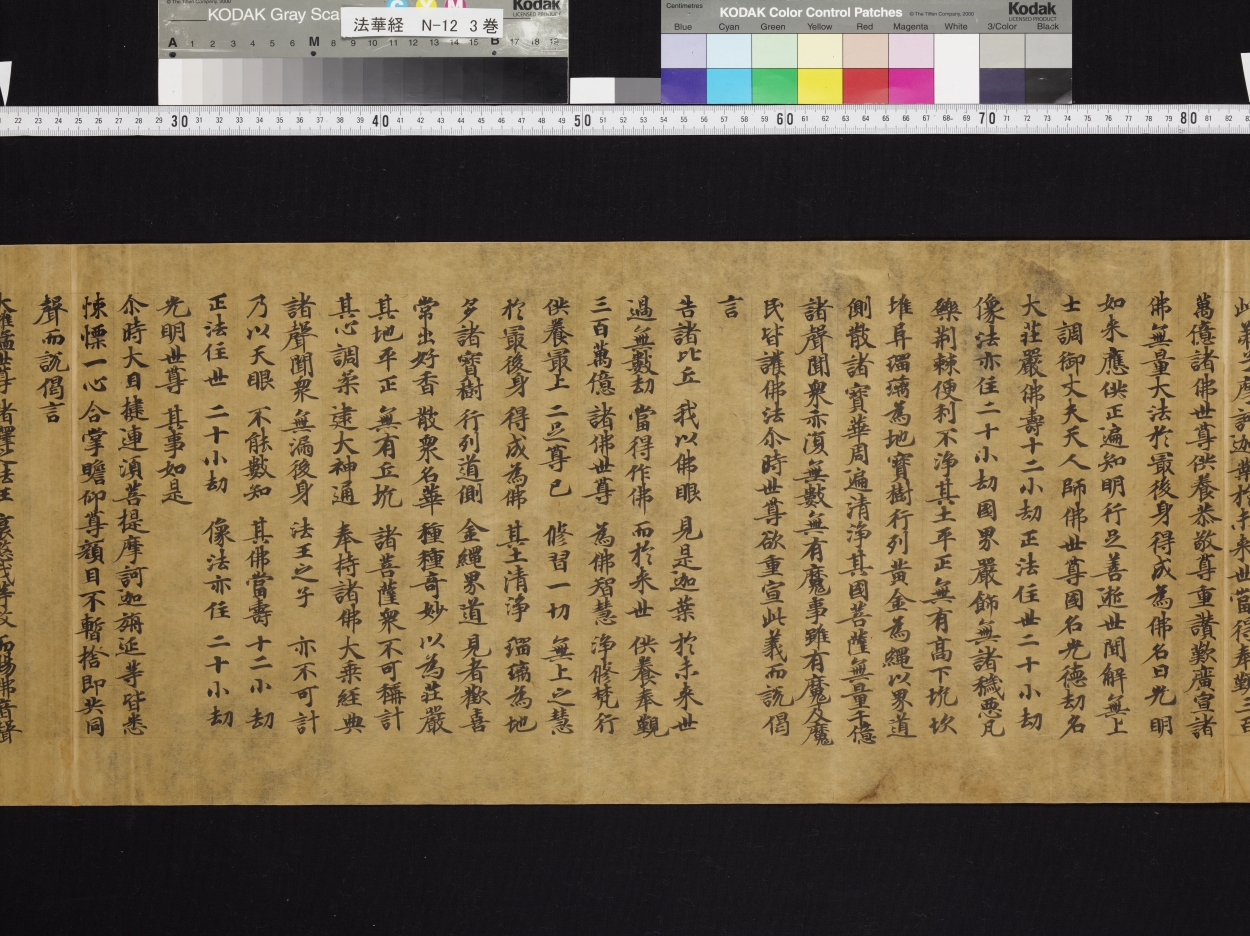 © The Tiffen Company, 2000
KODAK Gray Sca
C Y M
Kodak
LICENSED PRODUCT
法華経 N-12 3巻
A 1 2 3 4 5 6 M 8 9 10 11 12 13 14 15 B 17 18 19
Centimetres
KODAK Color Control Patches
© The Tiffen Company, 2000
Kodak
LICENSED PRODUCT
Blue Cyan Green Yellow Red Magenta White 3/Color Black
22 23 24 25 26 27 28 29 30 31 32 33 34 35 36 37 38 39 40 41 42 43 44 45 46 47 48 49 50 51 52 53 54 55 56 57 58 59 60 61 62 63 64 65 66 67 68 69 70 71 72 73 74 75 76 77 78 79 80 81 82
萬億諸佛世尊供養恭敬尊重讚歎廣宣諸
佛無量大法於最後身得成為佛名曰光明
如来應供正遍知明行足善逝世間解無上
士調御丈夫天人師佛世尊國名光德劫名
大莊嚴佛壽十二小劫正法住世二十小劫
像法亦住二十小劫國界嚴飾無諸穢惡凡
礫荊棘便利不淨其土平正無有高下坑坎
堆阜瑠璃為地寶樹行列黄金為繩以界道
側散諸寶華周遍清淨其國菩薩無量千億
諸聲聞衆亦復無數無有魔事雖有魔及魔
民皆護佛法尒時世尊欲重宣此義而説偈
言
告諸比丘 我以佛眼 見是迦葉 於未来世
過無數劫 當得作佛 而於来世 供養奉覲
三百萬億 諸佛世尊 為佛智慧 淨修梵行
供養最上 二足尊已 修習一切 無上之慧
於最後身 得成為佛 其土清淨 瑠璃為地
多諸寶樹 行列道側 金繩界道 見者歡喜
常出好香 散衆名華 種種奇妙 以為莊嚴
其地平正 無有丘坑 諸菩薩衆 不可稱計
其心調柔 逮大神通 奉持諸佛 大乗經典
諸聲聞衆 無漏後身 法王之子 亦不可計
乃以天眼 不能數知 其佛當壽 十二小劫
正法住世 二十小劫 像法亦住 二十小劫
光明世尊 其事如是
尒時大目揵連須菩提摩訶迦旃延等皆悉
悚慄一心合掌瞻仰尊顔目不暫捨即共同
聲而説偈言